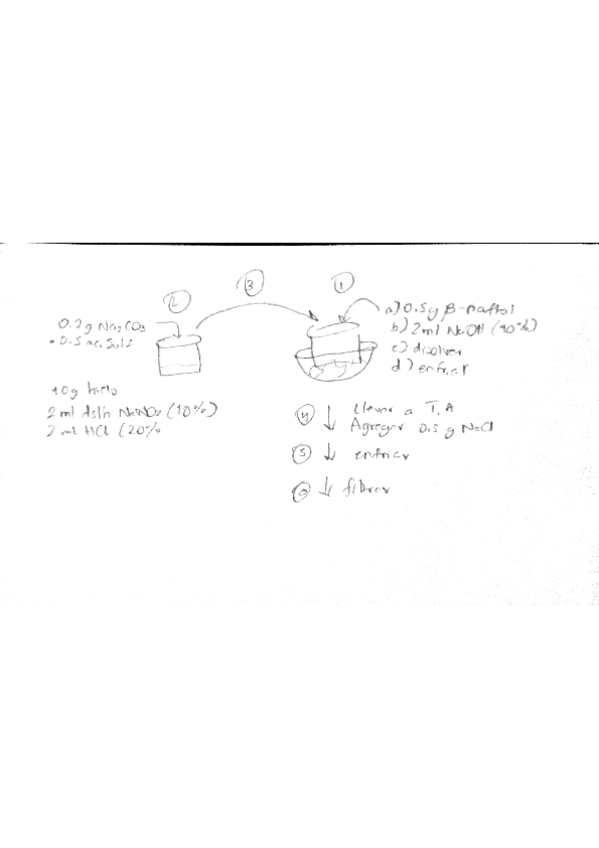 3
1
2
0.2g Na2CO3
0.5 ac. Sulf
a) 0.5g β-naftol
b) 2ml NaOH (10%)
c) disolver
d) enfriar
10g hielo
2 ml dsln NaNO2 (10%)
2 ml HCl (20%
4 ↓ Llevar a T.A
Agregar 0.5 g NaCl
5 ↓ enfriar
6 ↓ filtrar